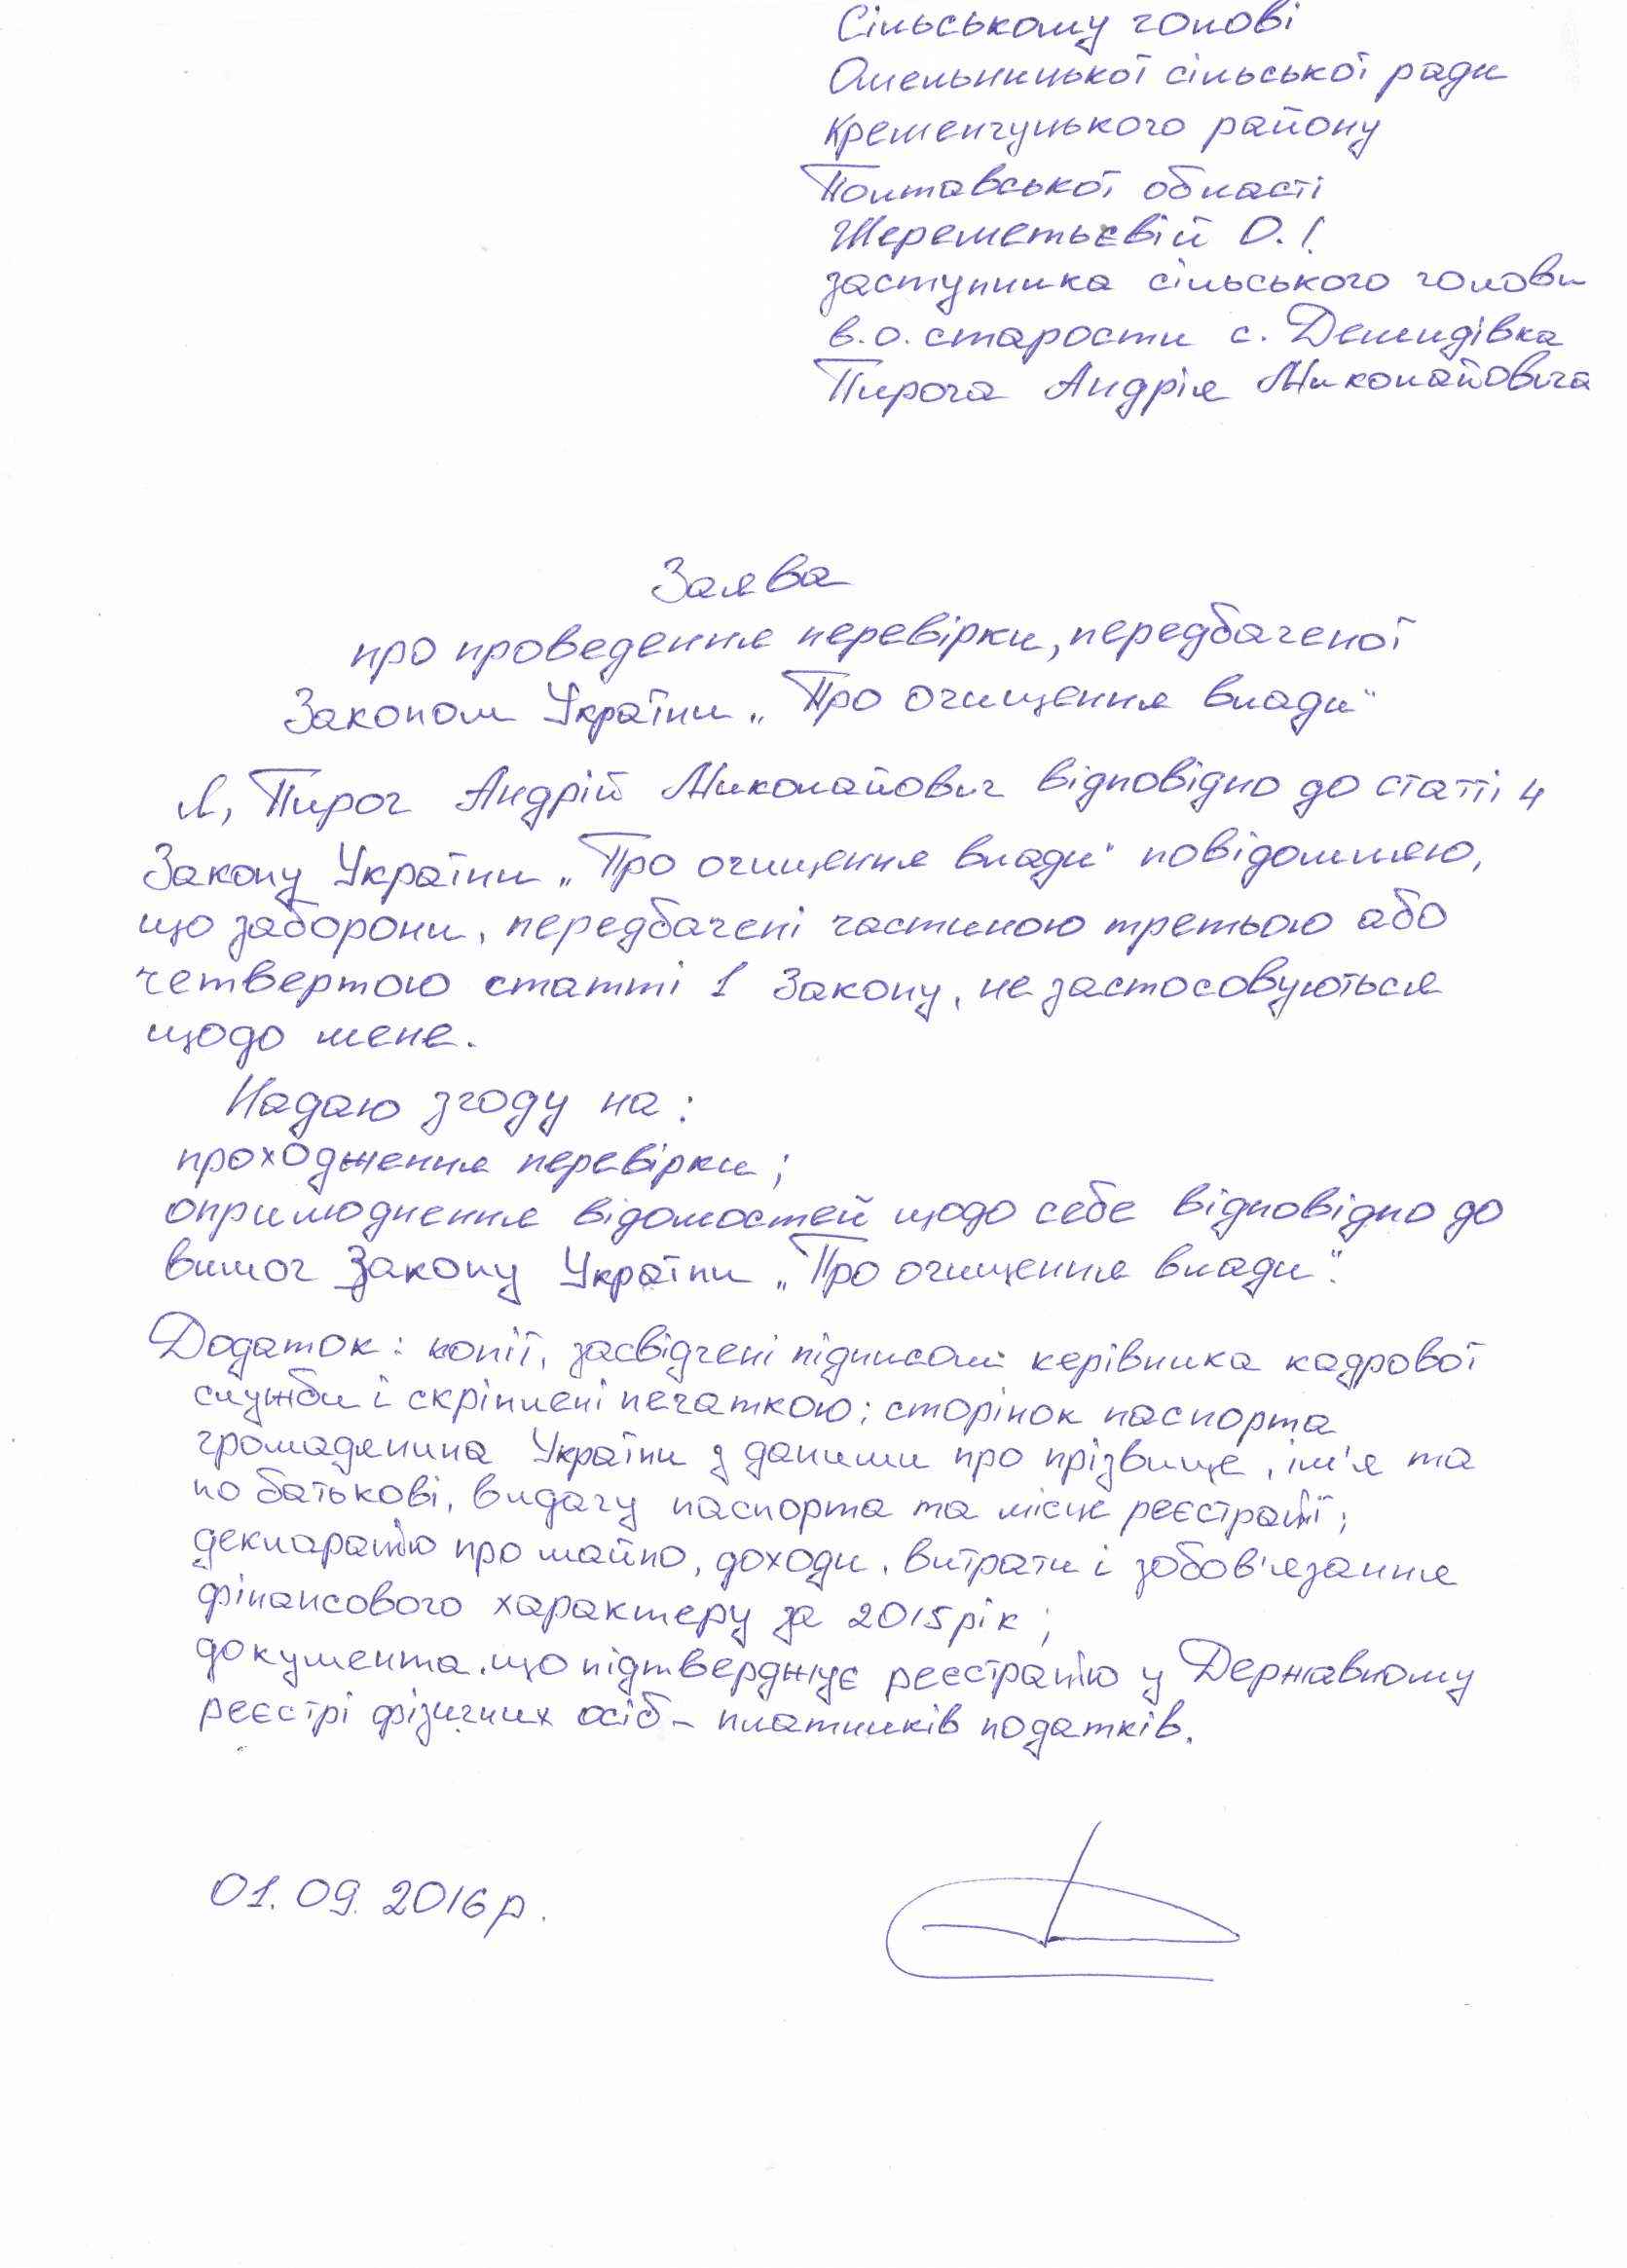 Сільському голові
Омельницької сільської ради
Кременчуцького району
Полтавської області
Шереметьєвій О.І.
заступника сільського голови
в.о. старости с. Демидівка
Пирога Андрія Миколайовича
Заява
про проведення перевірки, передбаченої
Законом України „Про очищення влади"
Я, Пирог Андрій Миколайович відповідно до статті 4
Закону України „Про очищення влади" повідомляю,
що заборони, передбачені частиною третьою або
четвертою статті 1 Закону, не застосовуються
щодо мене.
Надаю згоду на:
проходження перевірки;
оприлюднення відомостей щодо себе відповідно до
вимог Закону України „Про очищення влади".
Додаток: копії, засвідчені підписом керівника кадрової
служби і скріплені печаткою: сторінок паспорта
громадянина України з даними про прізвище, ім'я та
по батькові, видачу паспорта та місце реєстрації;
декларацію про майно, доходи, витрати і зобов'язання
фінансового характеру за 2015 рік;
документа, що підтверджує реєстрацію у Державному
реєстрі фізичних осіб – платників податків.
01.09.2016р.